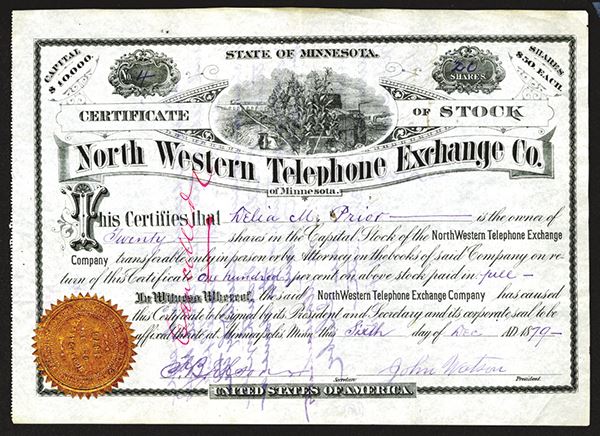 STATE OF MINNESOTA.
CAPITAL
$10,000.
No. 4
20
SHARES
SHARES
$50 EACH.
CERTIFICATE OF STOCK
North Western Telephone Exchange Co.
of Minnesota.
This Certifies that Delia M. Prior is the owner of
Twenty shares in the Capital Stock of the North Western Telephone Exchange
Company transferable only in person or by Attorney on the books of said Company on re-
turn of this Certificate one hundred per cent on above stock paid in full
In Witness Whereof, the said North Western Telephone Exchange Company has caused
this Certificate to be signed by its President and Secretary and its corporate seal to be
affixed hereto at Minneapolis Minn. this Sixth day of Dec AD 1879
Cancelled
John Watson
Secretary. President.
UNITED STATES OF AMERICA.